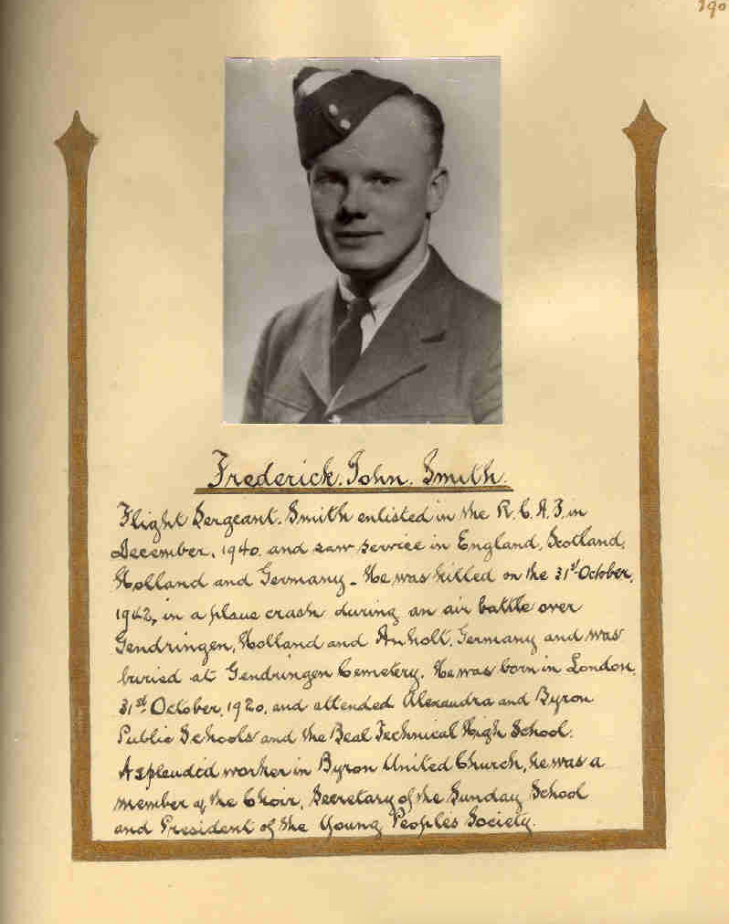 390
Frederick. John. Smith.
Flight Sergeant. Smith enlisted in the R.C.A.F. in
December, 1940. and saw service in England, Scotland,
Holland and Germany. He was killed on the 31st October,
1942, in a plane crash during an air battle over
Gendringen, Holland and Anholt, Germany and was
buried at Gendringen Cemetery. He was born in London,
31st October, 1920, and attended Alexandra and Byron
Public Schools and the Beal Technical High School.
A splendid worker in Byron United Church, he was a
member of the Choir, Secretary of the Sunday School
and President of the Young Peoples Society.